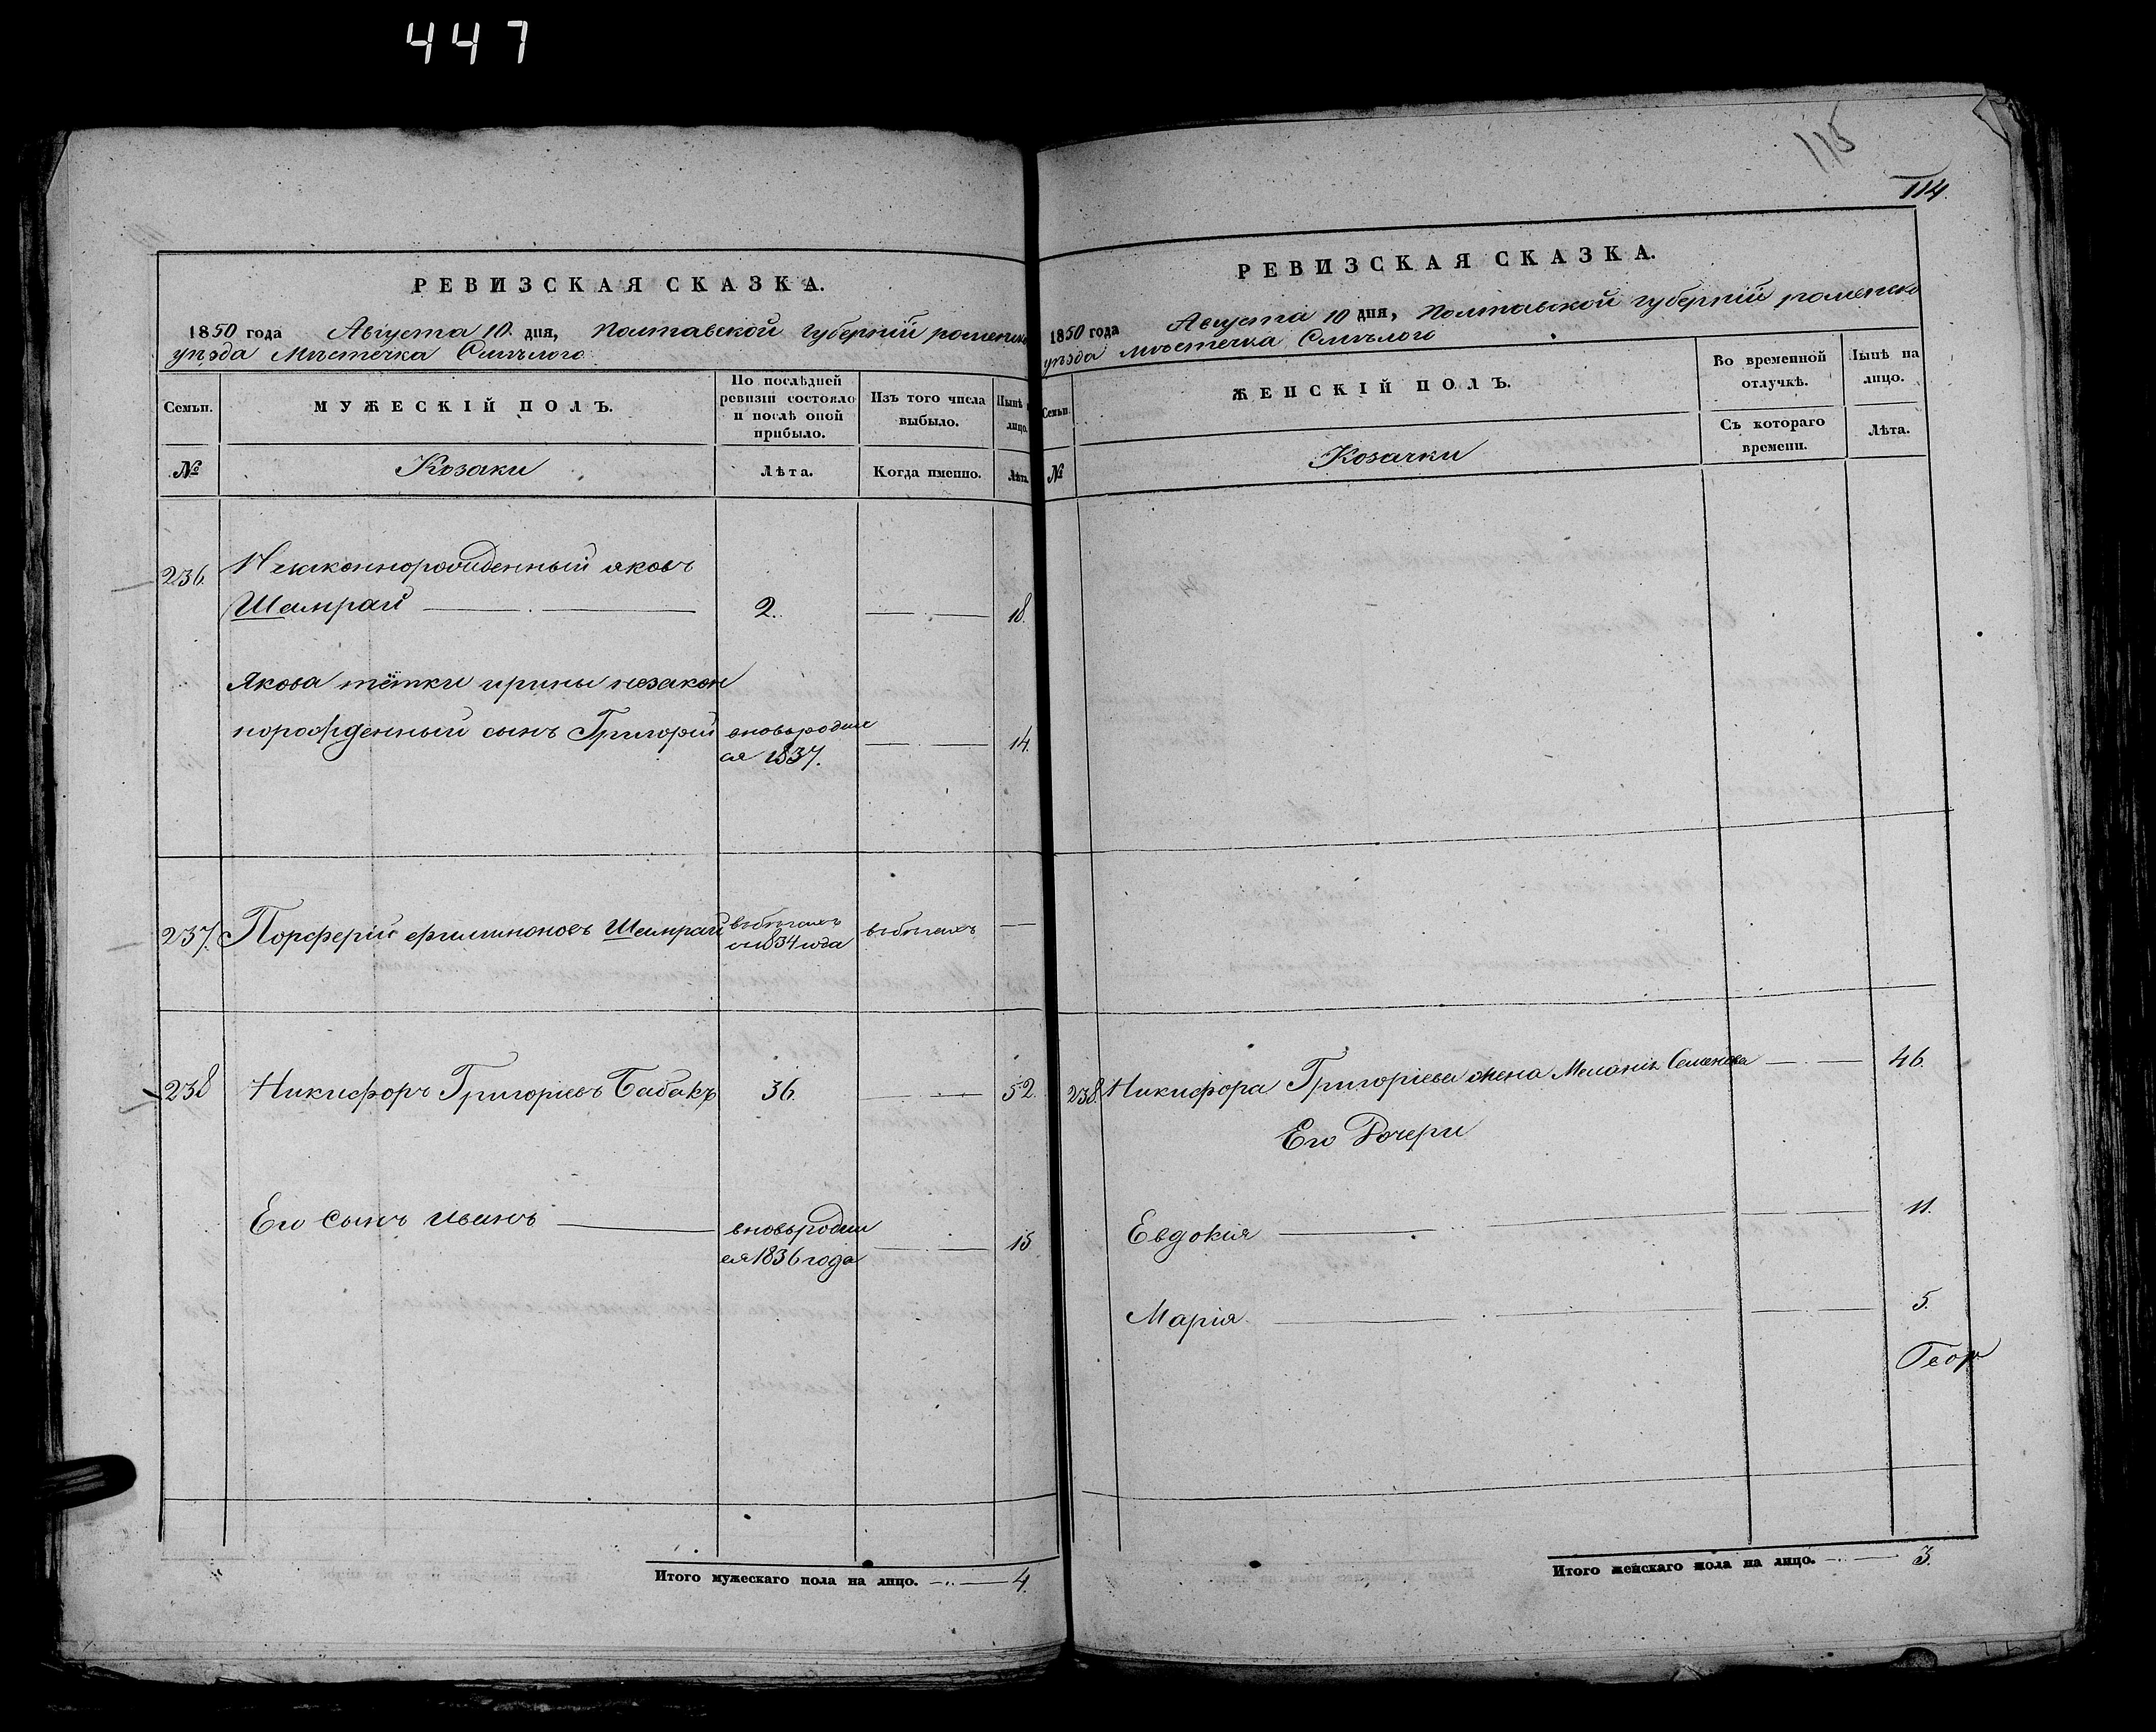 447
РЕВИЗСКАЯ СКАЗКА.
1850 года Августа 10. дня, Полтавской губерній роменско
уѣзда Мѣстечка Смѣлого
Семьи.
МУЖЕСКІЙ ПОЛЪ.
По послѣдней ревизіи состояло и послѣ оной прибыло.
Изъ того числа выбыло.
Нынѣ
лицо.
№
Козаки
Лѣта.
Когда именно.
Лѣта.
236. Незаконнорожденный яковъ
Шамрай 2. 18.
Якова тётки ирины незакон
норожденный сынъ Григорій вновьродил 14.
ся 1837.
237. Порферій Шамрай въбѣгахъ въбѣгахъ
1834 года
238 Никифоръ Григоріевъ Бабакъ 36. 52.
Его сынъ иванъ вновьродил
ся 1836 года 15
Итого мужескаго пола на лицо. 4.
115
114.
РЕВИЗСКАЯ СКАЗКА.
1850 года Августа 10 дня, Полтавской губерній роменско
уѣзда мѣстечка Смѣлого
Семьи.
ЖЕНСКІЙ ПОЛЪ.
Во временной отлучкѣ.
Нынѣ на лицо.
№
Козачки
Съ котораго времени.
Лѣта.
238. Никифора Григоріева жена Меланія Семенова 46.
Его Дочери
Евдокия 11.
Марія 5.
Геор
Итого женскаго пола на лицо. 3.